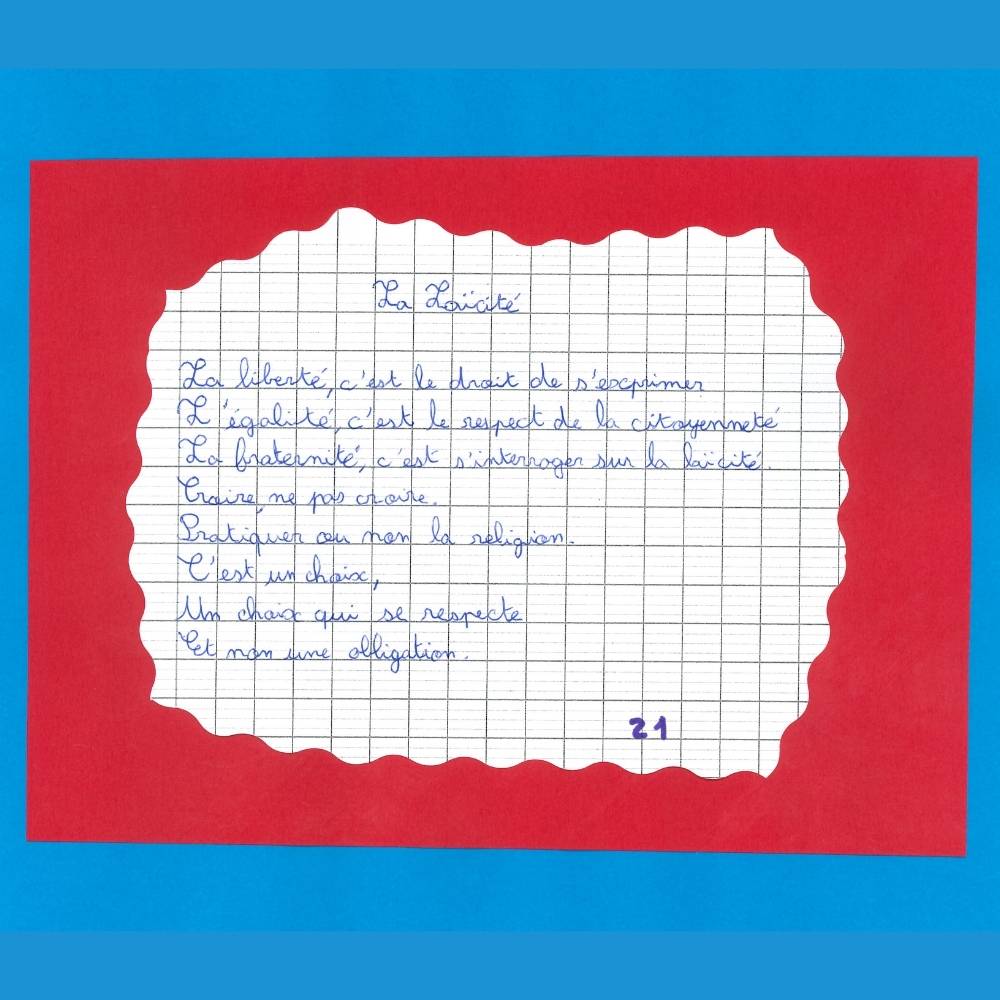 La Laïcité
La liberté, c'est le droit de s'exprimer
L'égalité, c'est le respect de la citoyenneté
La fraternité, c'est s'interroger sur la laïcité.
Croire, ne pas croire.
Pratiquer ou non la religion.
C'est un choix,
Un choix qui se respecte
Et non une obligation.
21